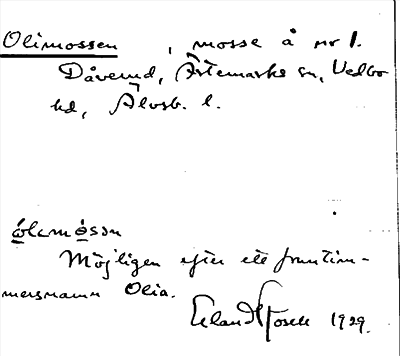 Olimossen , mosse å nr 1.
Dåverud, Ärtemarks sn, Vedbo
hd, Älvsb. l.
ólɩmòsən
Möjligen efter ett fruntim-
mersnamn Olia.
Erland Rosell 1929.